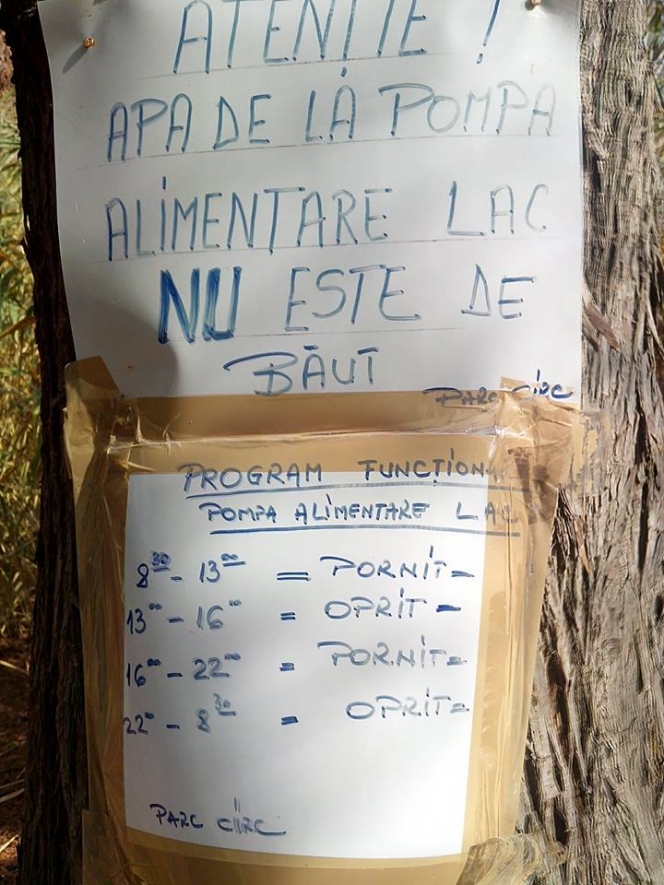 ATENȚIE !
APA DE LA POMPA
ALIMENTARE LAC
NU ESTE DE
BĂUT
PARC
PROGRAM FUNCȚION
POMPA ALIMENTARE LAC
8³⁰ - 13⁰⁰ = PORNIT =
13⁰⁰ - 16⁰⁰ = OPRIT =
16⁰⁰ - 22⁰⁰ = PORNIT =
22⁰⁰ - 8³⁰ = OPRIT =
PARC CIRC